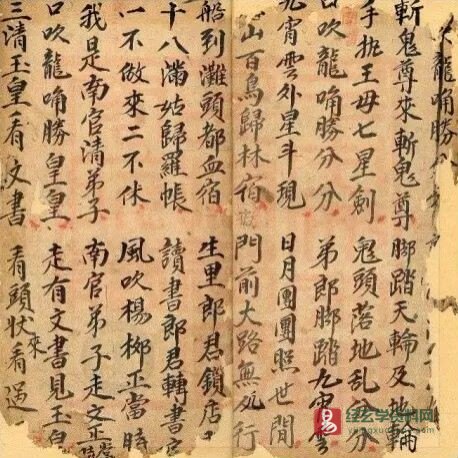 龍唃勝
斬鬼尊來斬鬼尊 脚踏天輪及地輪
手拒王母七星劍 鬼頭落地乱分分
口吹龍唃勝分分 弟郎脚踏九霄雲
元宵雲外星斗現 日月團團照世間
山百鳥歸林宿 門前大路無行
船到灘頭都血宿 生里郎君鎖店
十八滿姑歸羅帳 讀書郎君轉書
一不做來二不休 風吹楊柳正當時
我是南官清弟子 南官弟子走文正
口吹龍唃勝皇皇 走有文書見玉皇
三清玉皇看文書 看頭狀來看過
易玄学资料网